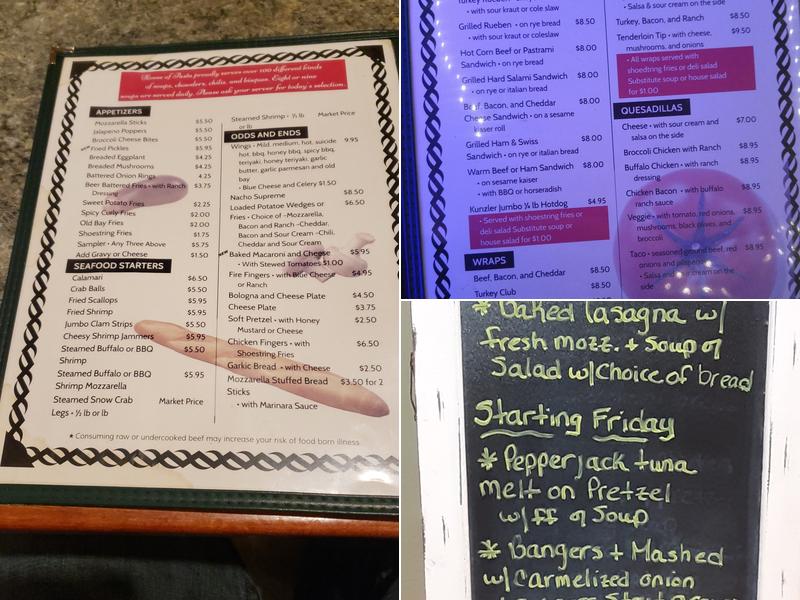 House of Pasta proudly serves over 100 different kinds
of soups, chowders, chilis, and bisques. Eight or nine
soups are served daily. Please ask your server for today's selection.
APPETIZERS
Mozzarella Sticks $5.50
Jalapeno Poppers $5.50
Broccoli Cheese Bites $5.50
Fried Pickles $5.95
Breaded Eggplant $4.25
Breaded Mushrooms $4.25
Battered Onion Rings 4.25
Beer Battered Fries • with Ranch $3.75
Dressing
Sweet Potato Fries $2.25
Spicy Curly Fries $2.00
Old Bay Fries $2.00
Shoestring Fries $1.75
Sampler • Any Three Above $5.75
Add Gravy or Cheese $1.50
SEAFOOD STARTERS
Calamari $6.50
Crab Balls $5.50
Fried Scallops $5.95
Fried Shrimp $5.95
Jumbo Clam Strips $5.50
Cheesy Shrimp Jammers $5.95
Steamed Buffalo or BBQ $5.50
Shrimp
Steamed Buffalo or BBQ $5.95
Shrimp Mozzarella
Steamed Snow Crab Market Price
Legs • ½ lb or lb
Steamed Shrimp • ½ lb Market Price
or lb
ODDS AND ENDS
Wings • Mild, medium, hot, suicide, 9.95
hot, bbq, honey bbq, spicy bbq,
teriyaki, honey teriyaki, garlic
butter, garlic parmesan and old
bay
• Blue Cheese and Celery $1.50
Nacho Supreme $8.50
Loaded Potatoe Wedges or $6.50
Fries • Choice of -Mozzarella,
Bacon and Ranch -Cheddar,
Bacon and Sour Cream -Chili,
Cheddar and Sour Cream
Baked Macaroni and Cheese $5.95
• With Stewed Tomatoes $1.00
Fire Fingers • with Blue Cheese $4.95
or Ranch
Bologna and Cheese Plate $4.50
Cheese Plate $3.75
Soft Pretzel • with Honey $2.50
Mustard or Cheese
Chicken Fingers • with $6.50
Shoestring Fries
Garlic Bread • with Cheese $2.50
Mozzarella Stuffed Bread $3.50 for 2
Sticks
• with Marinara Sauce
★ Consuming raw or undercooked beef may increase your risk of food born illness.
• with sour kraut or cole slaw
Grilled Rueben • on rye bread $8.50
• with sour kraut or coleslaw
Hot Corn Beef or Pastrami $8.00
Sandwich • on rye bread
Grilled Hard Salami Sandwich $8.00
• on rye or italian bread
Beef, Bacon, and Cheddar $8.00
Cheese Sandwich • on a sesame
kaiser roll
Grilled Ham & Swiss $8.00
Sandwich • on rye or italian bread
Warm Beef or Ham Sandwich $8.00
• on sesame kaiser
• with BBQ or horseradish
Kunzler Jumbo ¼ lb Hotdog $4.95
• Served with shoestring fries or
deli salad Substitute soup or
house salad for $1.00
WRAPS
Beef, Bacon, and Cheddar $8.50
Turkey Club $8.50
• Salsa & sour cream on the side
Turkey, Bacon, and Ranch $8.50
Tenderloin Tip • with cheese, $9.50
mushrooms, and onions
• All wraps served with
shoestring fries or deli salad
Substitute soup or house salad
for $1.00
QUESADILLAS
Cheese • with sour cream and $7.00
salsa on the side
Broccoli Chicken with Ranch $8.95
Buffalo Chicken • with ranch $8.95
dressing
Chicken Bacon • with buffalo $8.95
ranch sauce
Veggie • with tomato, red onions, $8.95
mushrooms, black olives, and
broccoli
Taco • seasoned ground beef, red $8.95
onions and jalapenos
• Salsa and sour cream on the
side
* baked lasagna w/
fresh mozz. + Soup or
Salad w/choice of bread
Starting Friday
* Pepperjack tuna
melt on Pretzel
w/ff or Soup
* Bangers + Mashed
w/Carmelized onion